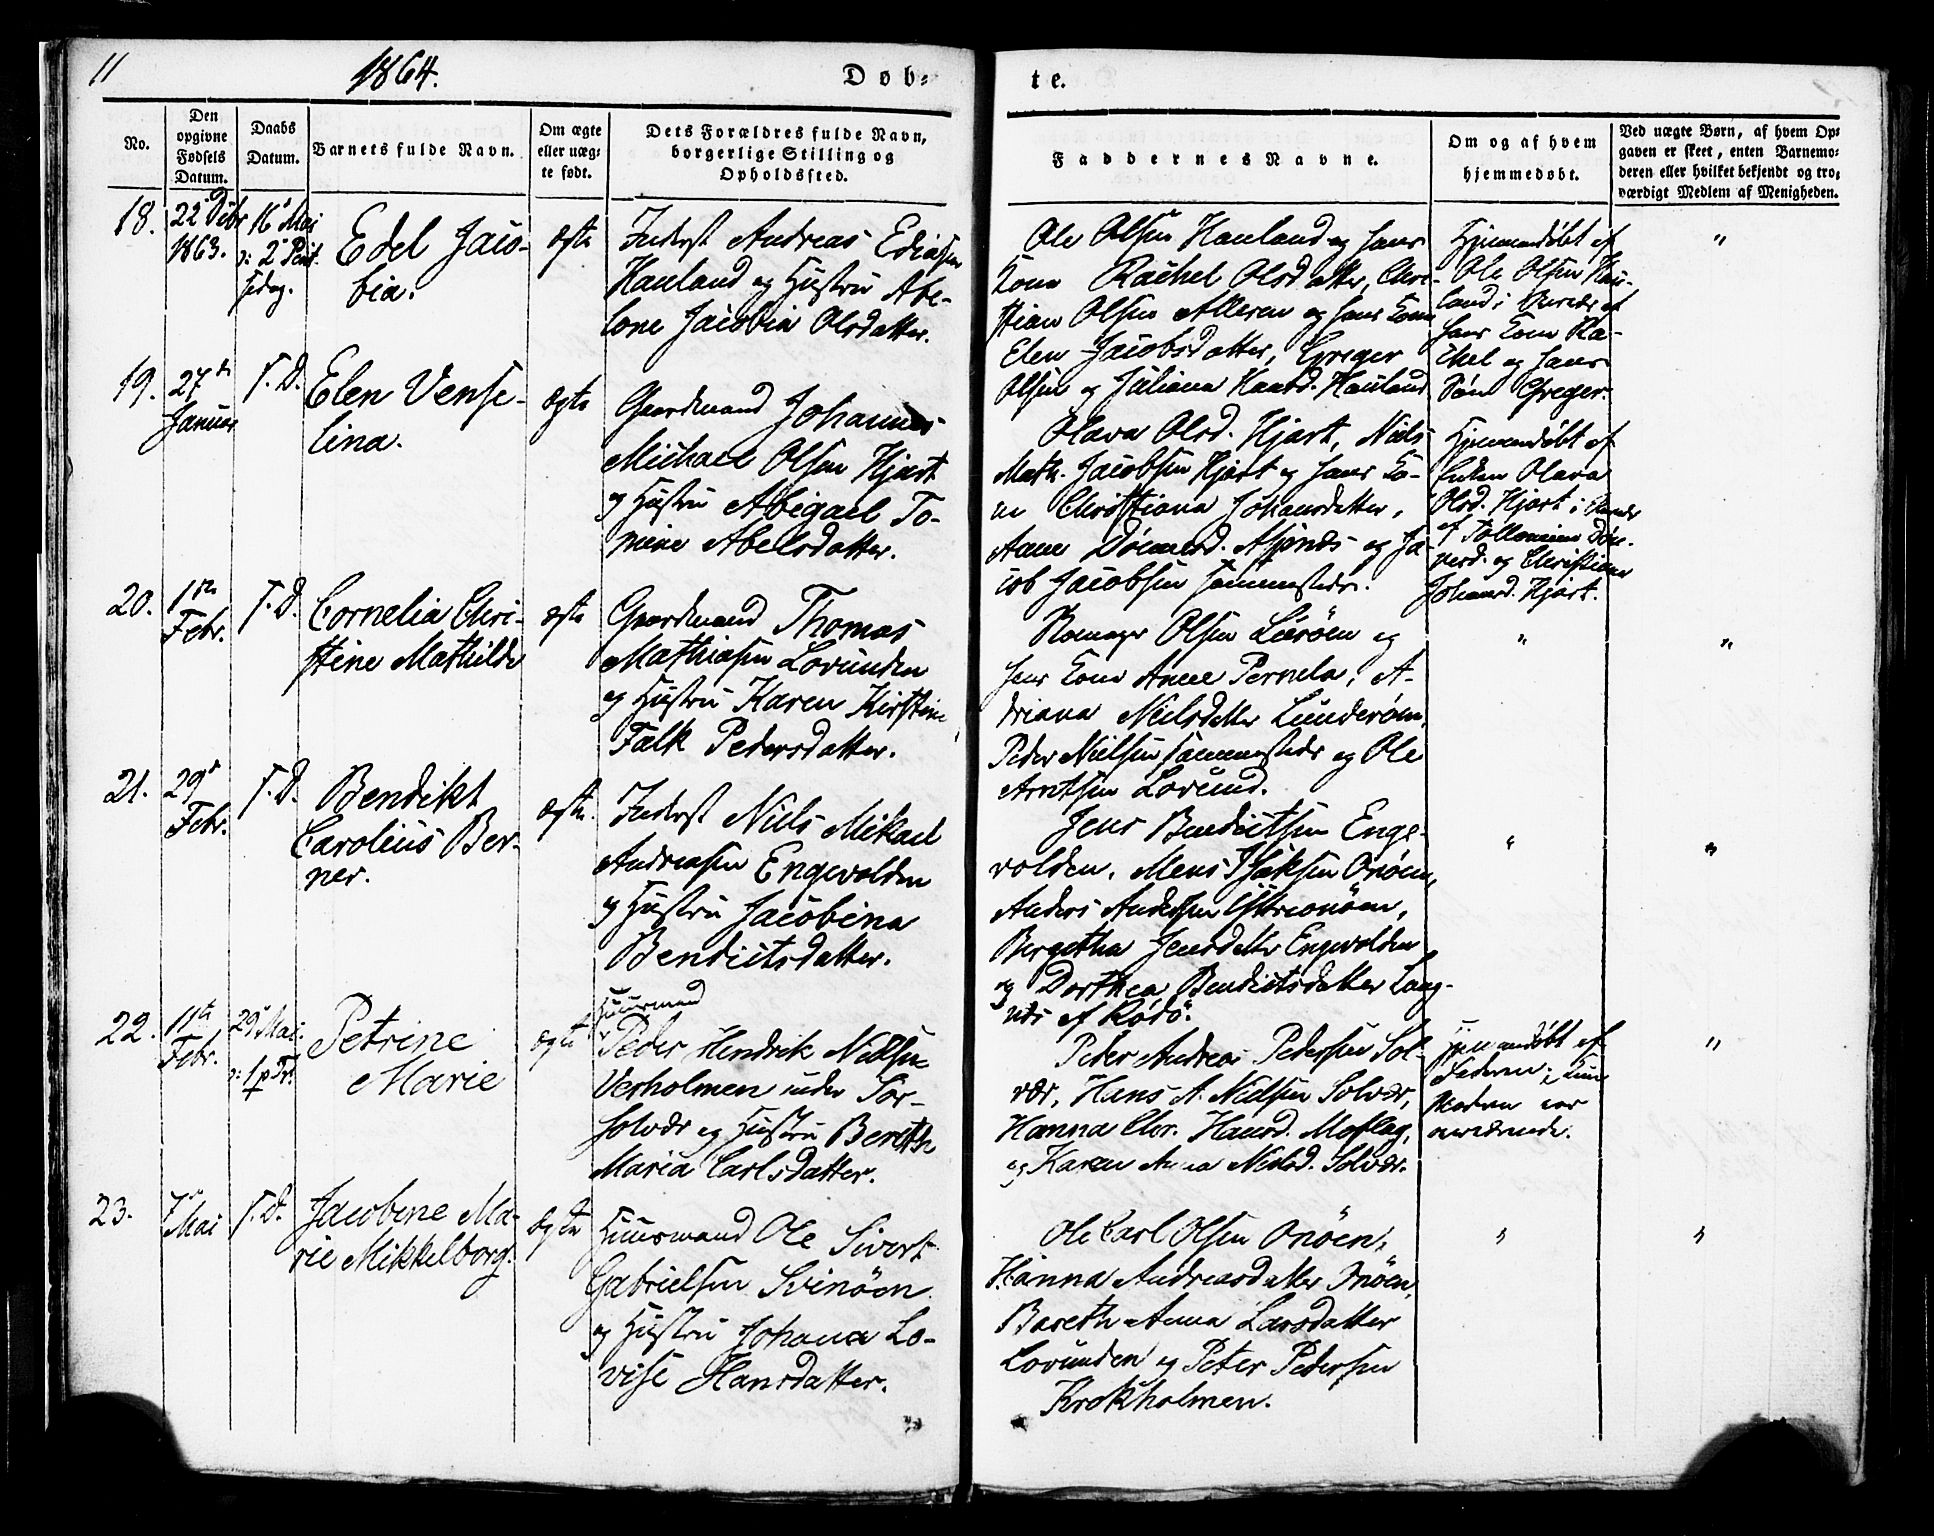 11
1864.
Døb-
te.
No.
Den
opgivne
Fødsels
Datum.
Daabs
Datum.
Barnets fulde Navn.
Om ægte
eller uæg-
te født.
Dets Forældres fulde Navn,
borgerlige Stilling og
Opholdssted.
Faddernes Navne.
Om og af hvem
hjemmedøbt.
Ved uægte Børn, af hvem Op-
gaven er skeet, enten Barnemo-
deren eller hvilket bekjendt og tro-
værdigt Medlem af Menigheden.
18.
22
1863.
16 Mai
2 Pint.
Edel Jaco-
bia.
ægte
Inderst Andreas
Hauland og Hustru Abe-
lone Jacobia Olsdatter.
Ole Olsen Hauland og hans
Kone Rachel Olsdatter, Chri-
stian Olsen Alleren og hans Kone
Elen Jacobsdatter, Greger
Olsen og Juliana Hansd. Hauland
Hjemmedøbt af
Ole Olsen Hau-
land i Nærvær af
hans Kone Ra-
chel og hans
Søn Greger.
"
19.
27de
Januar
S. D.
Elen Vense-
lina.
ægte
Gaardmand Johannes
Michael Olsen Hjart
og Hustru Abigael To-
mine Abelsdatter.
Olava Olsd. Hjart, Niels
Math. Jacobsen Hjart og hans Ko-
ne Christiana Johansdatter,
Anne og Ja-
cob Jacobsen sammesteds.
Hjemmedøbt af
Enken Olava
Olsd. Hjart i
af
og Christiana
Johansd. Hjart.
20.
1ste
Febr.
S. D.
Cornelia Chri-
stine Mathilde
ægte
Gaardmand Thomas
Mathiasen Lovunden
og Hustru Karen Kirstine
Falk Pedersdatter.
Olsen og
hans Kone Anne Pernela, A-
driana Nielsdatter
Peder Nielsen sammesteds og Ole
Arntsen Lovund.
"
"
21.
29de
Febr.
S. D.
Bendikt
Carolius Ber-
ner.
ægte.
Inderst Niels Mikael
Andreasen Engevolden
og Hustru Jacobina
Bendictsdatter.
Jens Bendictsen Enge-
volden, Mens Isaksen Onøen,
Anders Andersen
Bergetha Jensdatter Engevolden
og Dorthea Bendictsdatter Lang-
næs af Rødø.
"
"
22.
11te
Febr.
29 Mai
1 p Tr.
Petrine
Marie
ægte
Huusmand
Peder Hendrik Nielsen
Verholmen under Sør-
solvær og Hustru Berith
Maria Carlsdatter.
Peder Andreas Pedersen Sol-
vær, Hans A. Nielsen Solvær,
Hanna Chr. Hansd. Moflag,
og Karen Anna Nielsd. Solvær.
Hjemmedøbt af
Faderen; kun
Moderen var
nærværende.
"
23.
7de
Mai
S. D.
Jacobine Ma-
rie Mikkelborg.
ægte
Huusmand Ole Sivert
Gabrielsen Svinøen
og Hustru Johana Lo-
vise Hansdatter.
Ole Carl Olsen Onøen,
Hanna Andreasdatter Onøen,
Bareth Anna Larsdatter
Lovunden og Peter Pedersen
Krokholmen.
"
"